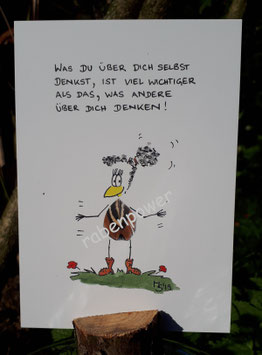 WAS DU ÜBER DICH SELBST
DENKST, IST VIEL WICHTIGER
ALS DAS, WAS ANDERE
ÜBER DICH DENKEN!
rabenpower